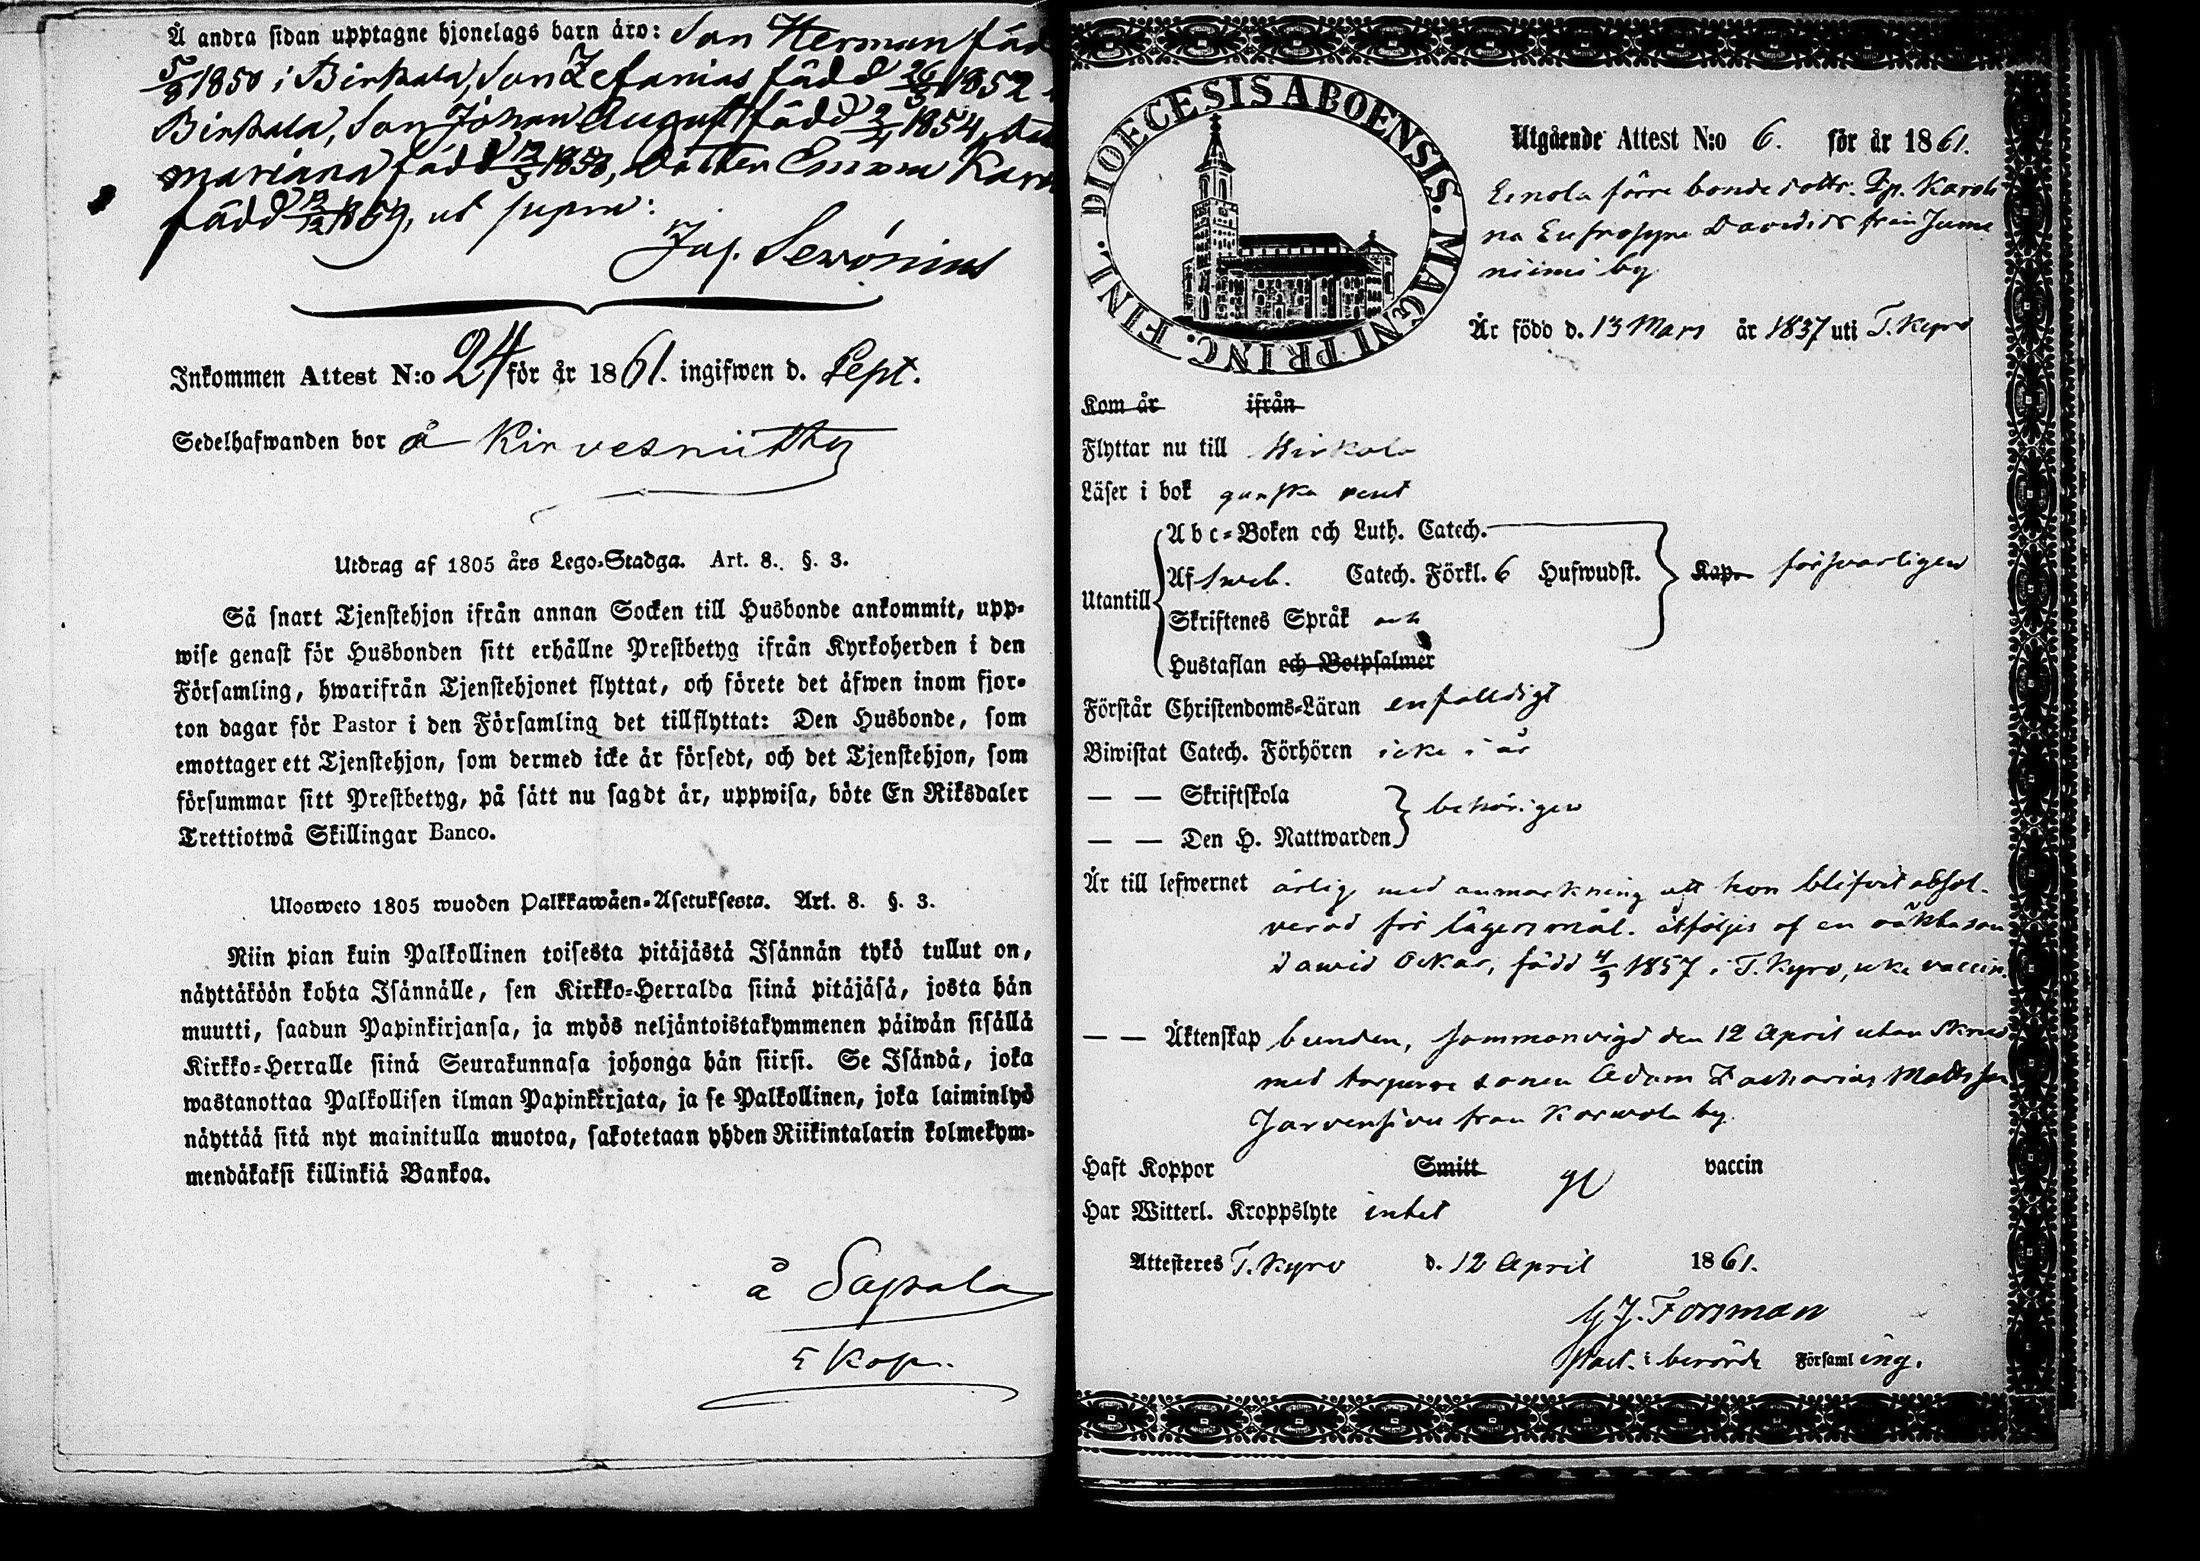 Å andra sidan upptagne hjonelags barn äro: Son Herman föd
5/8 1850 i Birkala, Son Zefanias född 26/5 1852
Birkala, Son Johan August född 1854,
Mariana född 1858, Dotter Emma Karo
född 1859, ut supra:
Jos. Serónius
Inkommen Attest N:o 24 för år 1861. ingifwen d. Sept.
Sedelhafwanden bor å
Utdrag af 1805 års Lego-Stadga. Art. 8. §. 3.
Så snart Tjenstehjon ifrån annan Socken till Husbonde ankommit, upp-
wise genast för Husbonden sitt erhållne Prestbetyg ifrån Kyrkoherden i den
Församling, hwarifrån Tjenstehjonet flyttat, och förete det äfwen inom fjor-
ton dagar för Pastor i den Församling det tillflyttat: Den Husbonde, som
emottager ett Tjenstehjon, som dermed icke är försedt, och det Tjenstehjon, som
försummar sitt Prestbetyg, på sätt nu sagdt är, uppwisa, böte En Riksdaler
Trettiotwå Skillingar Banco.
Ulosweto 1805 wuoden Palkkawäen-Asetuksesta. Art. 8. §. 3.
Niin pian kuin Palkollinen toisesta pitäjästä Isännän tykö tullut on,
näyttäköön kohta Isännälle, sen Kirkko-Herralda siinä pitäjäsä, josta hän
muutti, saadun Papinkirjansa, ja myös neljäntoistakymmenen päiwän sisällä
Kirkko-Herralle siinä Seurakunnasa johonga hän siirsi. Se Isändä, joka
wastanottaa Palkollisen ilman Papinkirjata, ja se Palkollinen, joka laiminlyö
näyttää sitä nyt mainitulla muotoa, sakotetaan yhden Riikintalarin kolmekym-
mendäkaksi killinkiä Bankoa.
å Sapkala
5 Kop.
DIOECESIS ABOENSIS. MAGNI PRINC. FINL.
Utgående Attest N:o 6. för år 1861.
förre bonde dottr. Karoli
na Eufrosyne Davidsdr från Jume
niemi by
Är född d. 13 Mars år 1837 uti T. Kyro
Kom år ifrån
Flyttar nu till Birkala
Läser i bok ganska rent
Utantill
Abc-Boken och Luth. Catech.
Af Sveb. Catech. Förkl. 6 Hufwudst. Kap. försvarligen
Skriftenes Språk och
Hustaflan och Botpsalmer
Förstår Christendoms-Läran enfaldigt
Biwistat Catech. Förhören icke i år
— — Skriftskola
— — Den H. Nattwarden behörigen
Är till lefwernet ärlig med anmärkning att hon blifvit absol-
verad för lägersmål. åtföljes af en oäkta son
David Oskar, född 4/9 1857 i T. Kyro, icke vaccin.
— — Äktenskap bunden, sammanvigd den 12 April utan Skrud
med torpare sonen Adam Zacharias Matts son
Jarvensivu från Karvola by.
Haft Koppor Smitt vaccin
Har Witterl. Kroppslyte intet
Attesteras T. Kyro d. 12 April 1861.
G J. Forsman
Past. i berörde Församling.